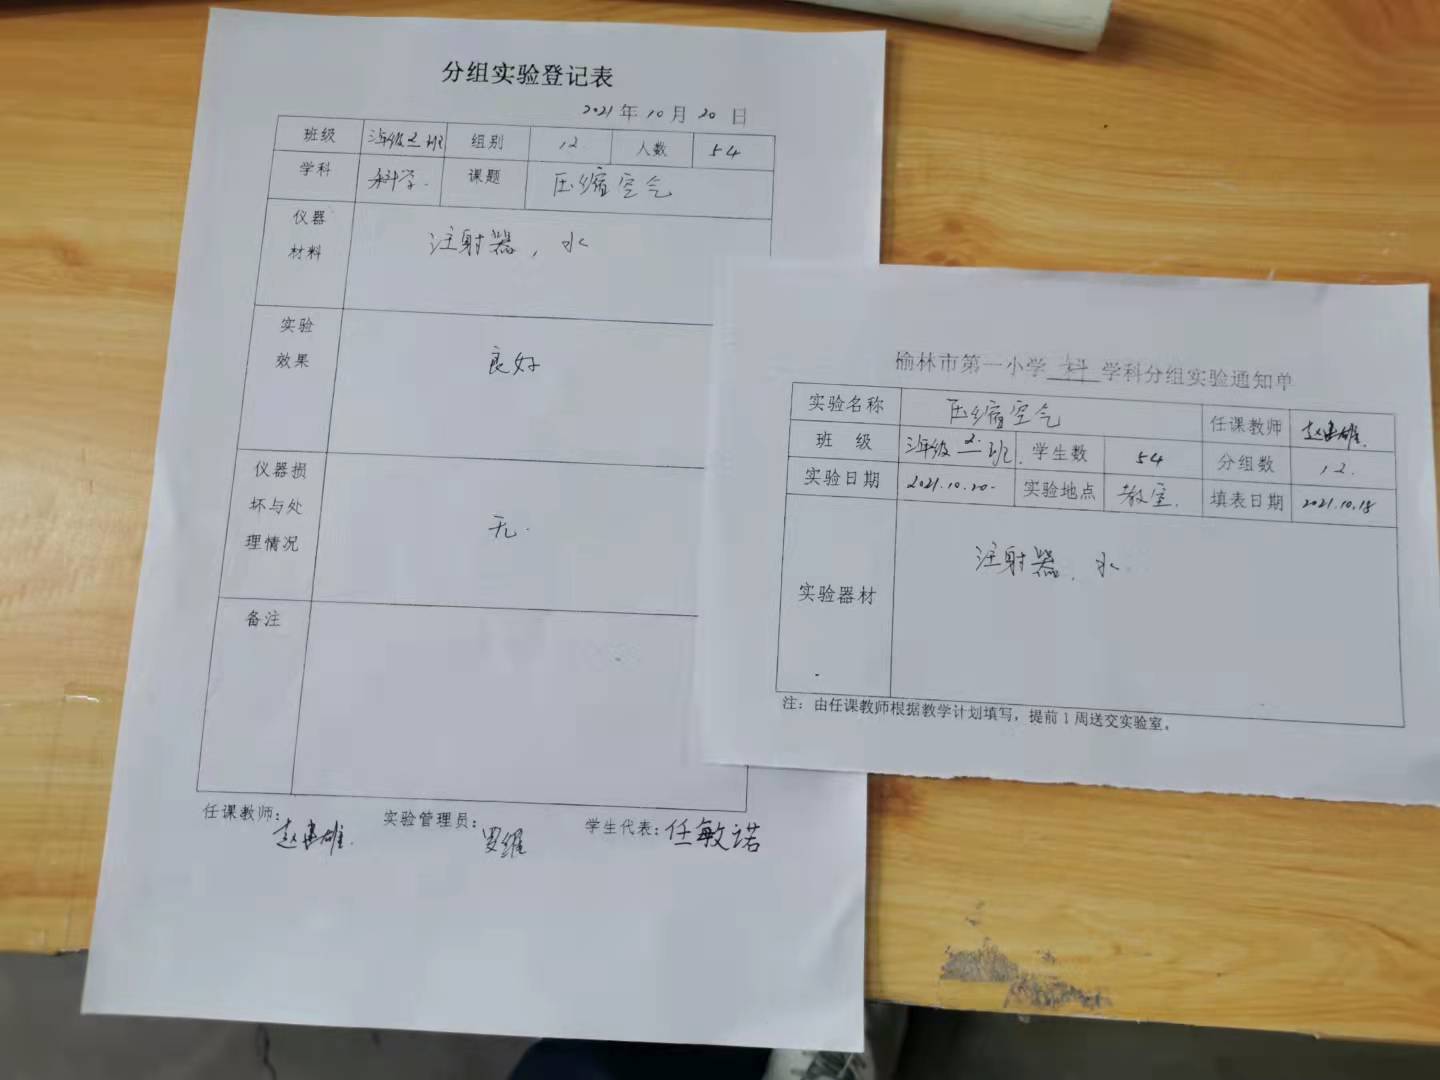 分组实验登记表
2021年10月20日
班级 三年级二班 组别 12 人数 54
学科 科学 课题 压缩空气
仪器材料 注射器，水
实验效果 良好
仪器损坏与处理情况 无
备注
任课教师：赵建雄 实验管理员：罗维 学生代表：任敏诺
榆林市第一小学 科 学科分组实验通知单
实验名称 压缩空气 任课教师 赵建雄
班 级 三年级二班 学生数 54 分组数 12
实验日期 2021.10.20 实验地点 教室 填表日期 2021.10.18
实验器材 注射器、水
注：由任课教师根据教学计划填写，提前1周送交实验室。